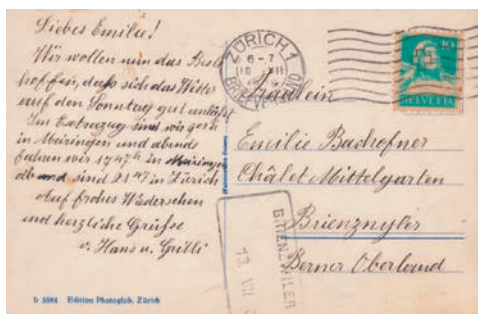 Liebes Emilie!
Wir wollen nun das Beste
hoffen, dass sich das Wetter
auf den Sonntag gut anlässt
Im Extrazug sind wir gern
in Meiringen und abends
fahren wir 17 47 h in Meiringen
ab und sind 21 47 in Zürich
Auf frohes Wiedersehen
und herzliche Grüsse
v. Hans u. Gritli
b 5584 Edition Photoglob, Zürich
ZÜRICH 1
6-7
VII
BRIEFVERSAND
10
HELVETIA
Fräulein
Emilie Bachofner
Châlet Mittelgarten
Brienzwyler
Berner Oberland
BRIENZWILER
13. VII